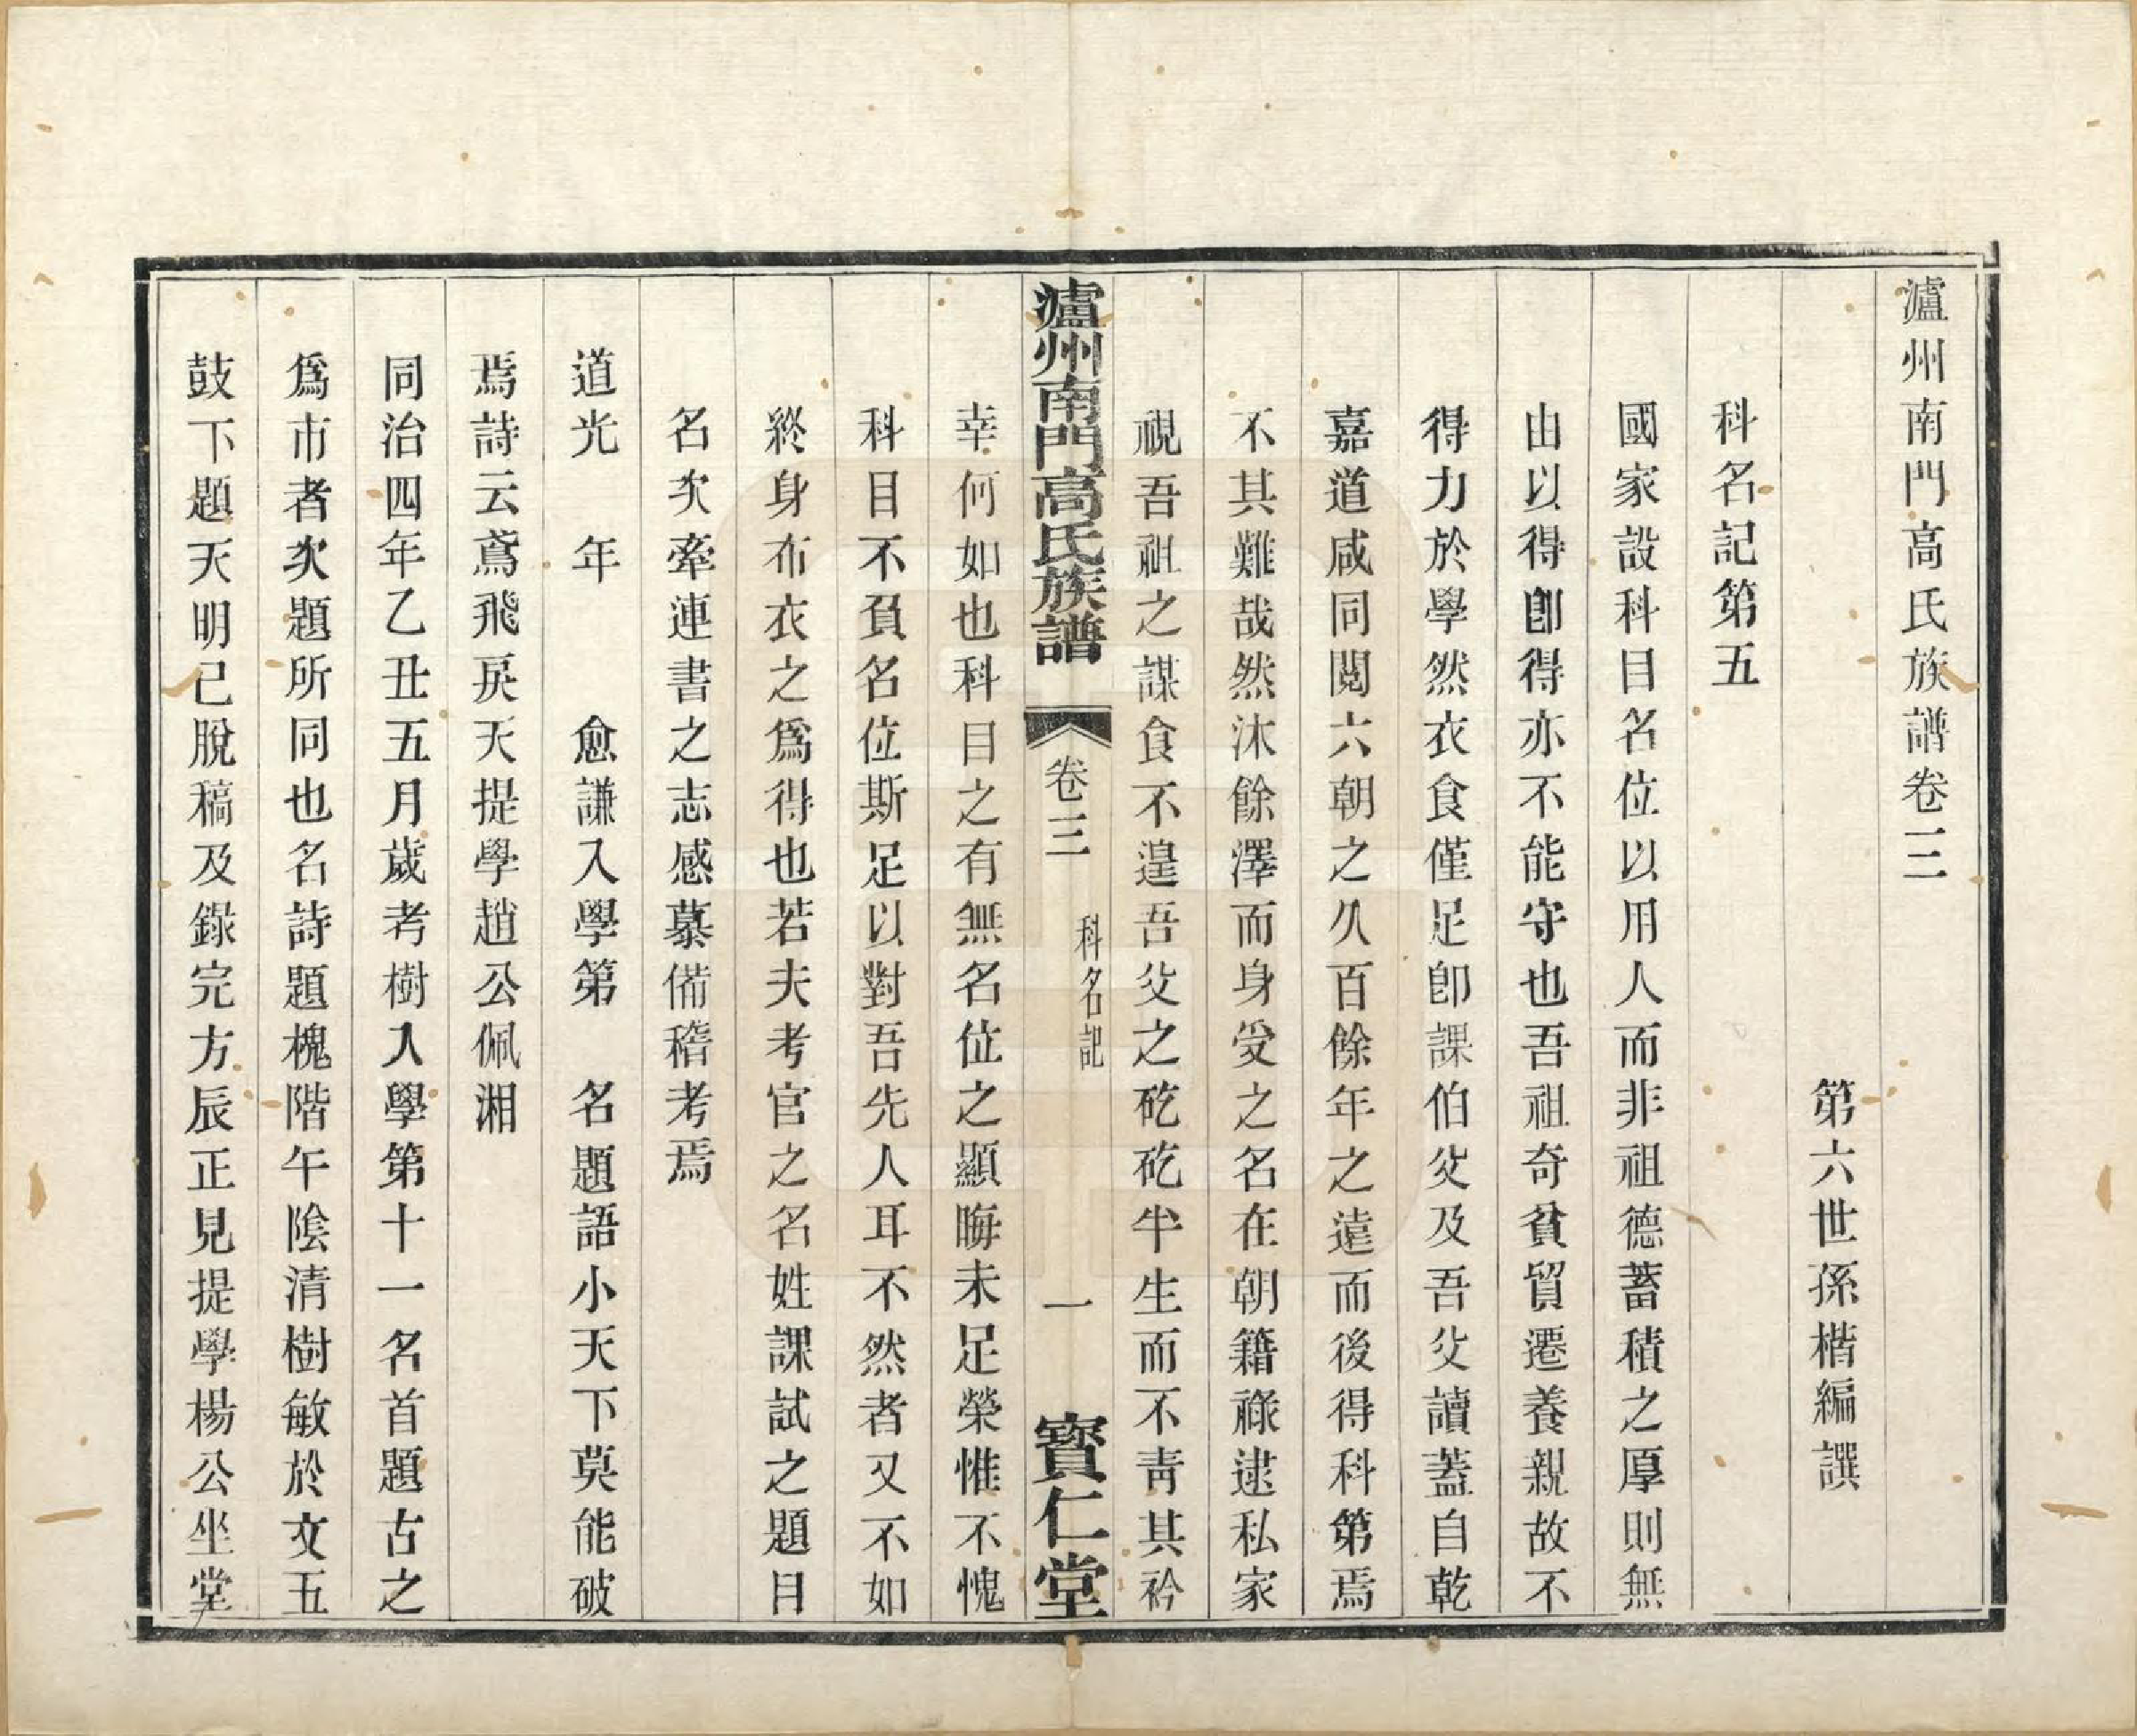 瀘州南門高氏族譜卷三
第六世孫楷編譔
科名記第五
國家設科目名位以用人而非祖德蓄積之厚則無
由以得卽得亦不能守也吾祖奇貧貿遷養親故不
得力於學然衣食僅足卽課伯父及吾父讀蓋自乾
嘉道咸同閱六朝之久百餘年之遠而後得科第焉
不其難哉然沐餘澤而身受之名在朝籍祿逮私家
視吾祖之謀食不遑吾父之矻矻半生而不靑其衿
瀘州南門高氏族譜 卷三 科名記 一 寳仁堂
幸何如也科目之有無名位之顯晦未足榮惟不愧
科目不負名位斯足以對吾先人耳不然者又不如
終身布衣之爲得也若夫考官之名姓課試之題目
名次牽連書之志感慕備稽考焉
道光 年 愈謙入學第 名題語小天下莫能破
焉詩云鳶飛戾天提學趙公佩湘
同治四年乙丑五月歲考樹入學第十一名首題古之
爲市者次題所同也名詩題槐階午陰清樹敏於文五
鼓下題天明已脫稿及錄完方辰正見提學楊公坐堂